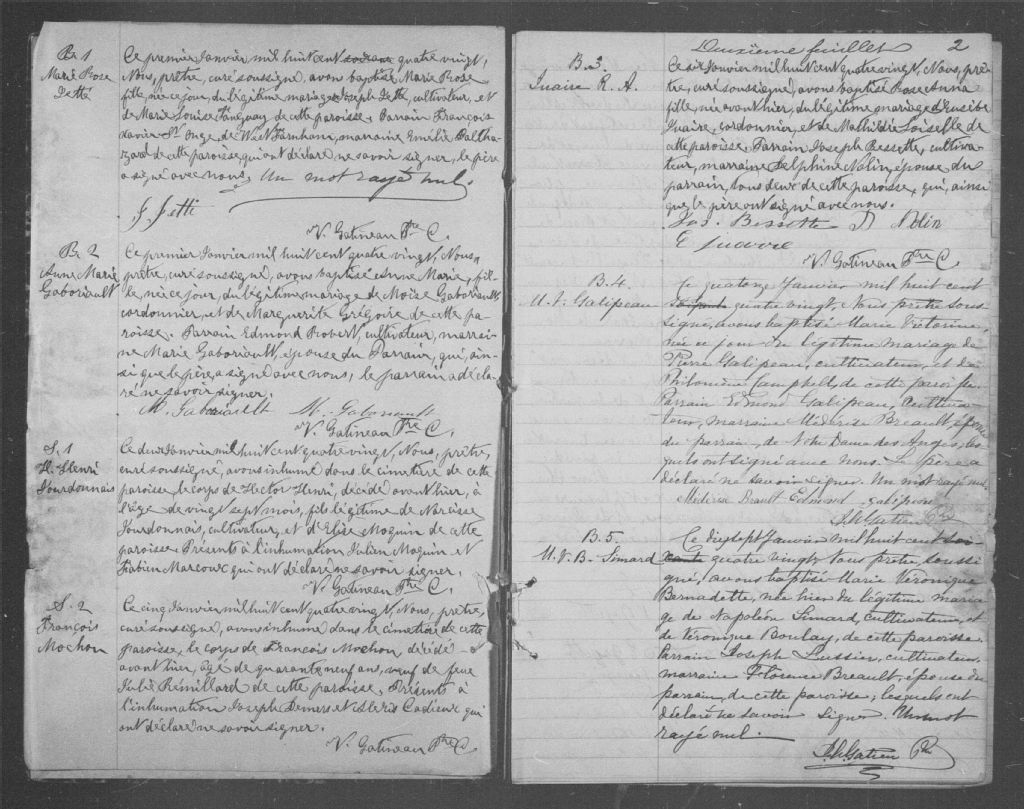 B. 1
Marie Rose
Jetté
Ce premier Janvier mil huit cent soixante quatre vingt,
Nous, prêtre, curé soussigné, avons baptisé Marie Rose
fille, née ce jour, du légitime mariage Joseph Jetté, cultivateur, et
de Marie Louise Tanguay de cette paroisse. Parrain François
Xavier St Onge de West Farnham, marraine Emélie Baltha
zard de cette paroisse qui ont déclaré ne savoir signer, le père
a signé avec nous. Un mot rayé nul.
J. Jetté
V. Gatineau Ptre C.
B. 2
Anne Marie
Gaboriault
Ce premier Janvier mil huit cent quatre vingt, Nous,
prêtre, curé soussigné, avons baptisé Anne Marie, fil-
le, née ce jour, du légitime mariage de Moïse Gaboriault,
cordonnier, et de Marguerite Grégoire de cette pa-
roisse. Parrain Edmond Robert, cultivateur, marrai-
ne Marie Gaboriault, épouse du Parrain, qui, ain-
si que le père, a signé avec nous, le parrain a décla-
ré ne savoir signer.
M. Gaboriault M. Gaboriault
V. Gatineau Ptre C.
S. 1
H. Henri
Jourdonnais
Ce deux Janvier mil huit cent quatre vingt, Nous, prêtre,
curé soussigné, avons inhumé dans le cimetière de cette
paroisse, le corps de Hector Henri, décédé avant hier, à
l'âge de vingt sept mois, fils légitime de Narcisse
Jourdonnais, cultivateur, et d'Elise Moquin de cette
paroisse. Présents à l'inhumation Julien Moquin et
Fabien Marcoux qui ont déclaré ne savoir signer.
V. Gatineau Ptre C.
S. 2
François
Mochon
Ce cinq Janvier mil huit cent quatre vingt, Nous, prêtre,
curé soussigné, avons inhumé dans le cimetière de cette
paroisse, le corps de François Mochon décédé
avant hier, âgé de quarante neuf ans, veuf de feue
Julie Rémillard de cette paroisse. Présents à
l'inhumation Joseph Demers et Alexis Cadieux qui
ont déclaré ne savoir signer.
V. Gatineau Ptre C.
Deuxième feuillet 2
B. 3.
Juaire R. A.
Ce six Janvier mil huit cent quatre vingt, Nous, prê-
tre, curé soussigné, avons baptisé Rose Anna
fille, née avant hier, du légitime mariage d'Eusèbe
Juaire, cordonnier, et de Mathilde Loiselle de
cette paroisse. Parrain Joseph Bessette, cultiva-
teur, marraine Delphine Nolin, épouse du
parrain, tous deux de cette paroisse, qui, ainsi
que le père ont signé avec nous.
Jos. Bessette D Nolin
E Juaire
V. Gatineau Ptre C.
B. 4.
M. V. Galipeau
Ce quatorze Janvier mil huit cent
soixante quatre vingt, Nous prêtre sous-
signé, avons baptisé Marie Victorine,
née ce jour du légitime mariage de
Pierre Galipeau, cultivateur, et de
Philomène Campbell, de cette paroisse.
Parrain Edmond Galipeau, cultiva-
teur, marraine Médérise Breault, épouse
du parrain, de Notre Dame des Anges, les-
quels ont signé avec nous. Le père a
déclaré ne savoir signer. Un mot rayé nul.
Mederise Brault Edmond galipeau
Ptre
B. 5.
M. V. B. Simard
Ce dix sept Janvier mil huit cent soi-
xante quatre vingt, Nous prêtre, soussi
gné, avons baptisé Marie Véronique
Bernadette, née hier du légitime maria
ge de Napoléon Simard, cultivateur, et
de Véronique Boulay, de cette paroisse.
Parrain Joseph Lussier, cultivateur,
marraine Florence Breault, épouse du
parrain, de cette paroisse; lesquels ont
déclaré ne savoir signer. Un mot
rayé nul.
Ptre